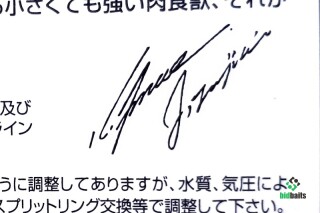 小さくても強い肉食獣、それが
及び
ライン
うに調整してありますが、水質、気圧によ
スプリットリング交換等で調整して下さい。
bidbaits